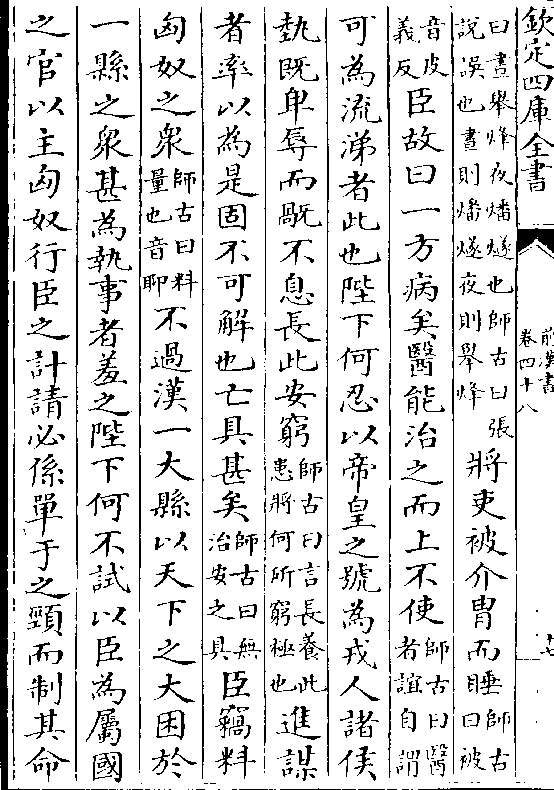 欽定四庫全書
前漢書
卷四十八
曰晝舉烽夜燔燧也師古曰張
說誤也晝則燔燧夜則舉烽
將吏被介胄而睡
師古
曰被
音皮
義反
臣故曰一方病矣醫能治之而上不使
師古曰醫
者誼自謂
可為流涕者此也陛下何忍以帝皇之號為戎人諸侯
埶既卑辱而旤不息長此安窮
師古曰言長養此
患將何所窮極也
進謀
者率以為是固不可解也亡具甚矣
師古曰無
治安之具
臣竊料
匈奴之衆
師古曰料
量也音聊
不過漢一大縣以天下之大困於
一縣之衆甚為執事者羞之陛下何不試以臣為屬國
之官以主匈奴行臣之計請必係單于之頸而制其命